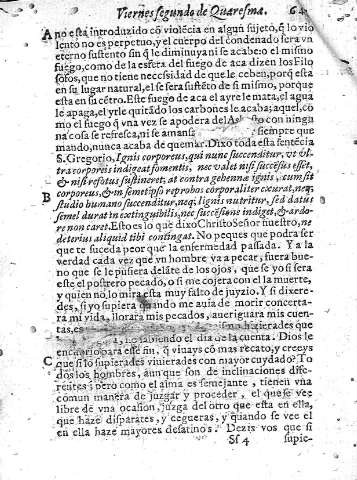 Viernes segundo de Quaresma. 64
A no esta introduzido cō violēcia en algun sujeto, q̄ lo vio
lento no es perpetuo, y el cuerpo del condenado sera vn
eterno sustento sin q̄ le diminuya ni se acabe: o el mismo
fuego, como de la esfera del fuego de aca dizen los Filo
sofos, que no tiene necessidad de que le ceben, porq̄ esta
en su lugar natural, el se sera sustēto de si mismo, porque
esta en su cētro. Este fuego de aca el ayre le mata, el agua
le apaga, el yrle quitādo los carbones le acaba; aquel, co
mo el fuego q̄ vna vez se apodera del con ningu
na cosa se refresca, ni se amansa siempre que
mando, nunca acaba de quemar. Dixo toda esta sentēcia
S. Gregorio, Ignis corporeus, qui nunc succenditur, vt vl-
tra corporeis indigeat fomentis, nec valet nisi succēsus esset,
& nisi refotus sustineret: at contra gehennæ ignis, cum sit
corporeus, & in semetipso reprobos corporaliter exurat, neq;
B studio humano succenditur, neq; lignis nutritur, sed datus
semel durat in extinguibilis, nec succēsione indiget, & ardo-
re non caret. Esto es lo que dixo Christo Señor nuestro, ne
deterius aliquid tibi contingat. No peques que podra ser
que te suceda peor que la enfermedad passada. Y a la
verdad cada vez que vn hombre va a pecar, fuera bue-
no que se le pusiera delāte de los ojos, que se yo si sera
este el postrero pecado, o si me cojera con el la muerte,
y quien no lo mira esta muy falto de juyzio. Y si dixere-
des, si yo supiera quando me auia de morir concerta-
ra mi vida, llorara mis pecados, aueriguara mis cuen-
tas, es hizierades que
no sabiendo el dia de la cuenta. Dios le
encubrio para esse fin, q̄ viuays cō mas recato, y creeys
C que si lo supierades viuierades con mayor cuydado? To
dos los hombres, aunque son de inclinaciones dife-
rentes; pero como el alma es semejante, tienen vna
comun manera de juzgar y proceder, el que se vee
libre de vna ocasion, juzga del otro que esta en ella,
que haze disparates, y cegueras, y quando se vee el
en ella haze mayores desatinos. Dezis vos que si
Sf 4 supie-